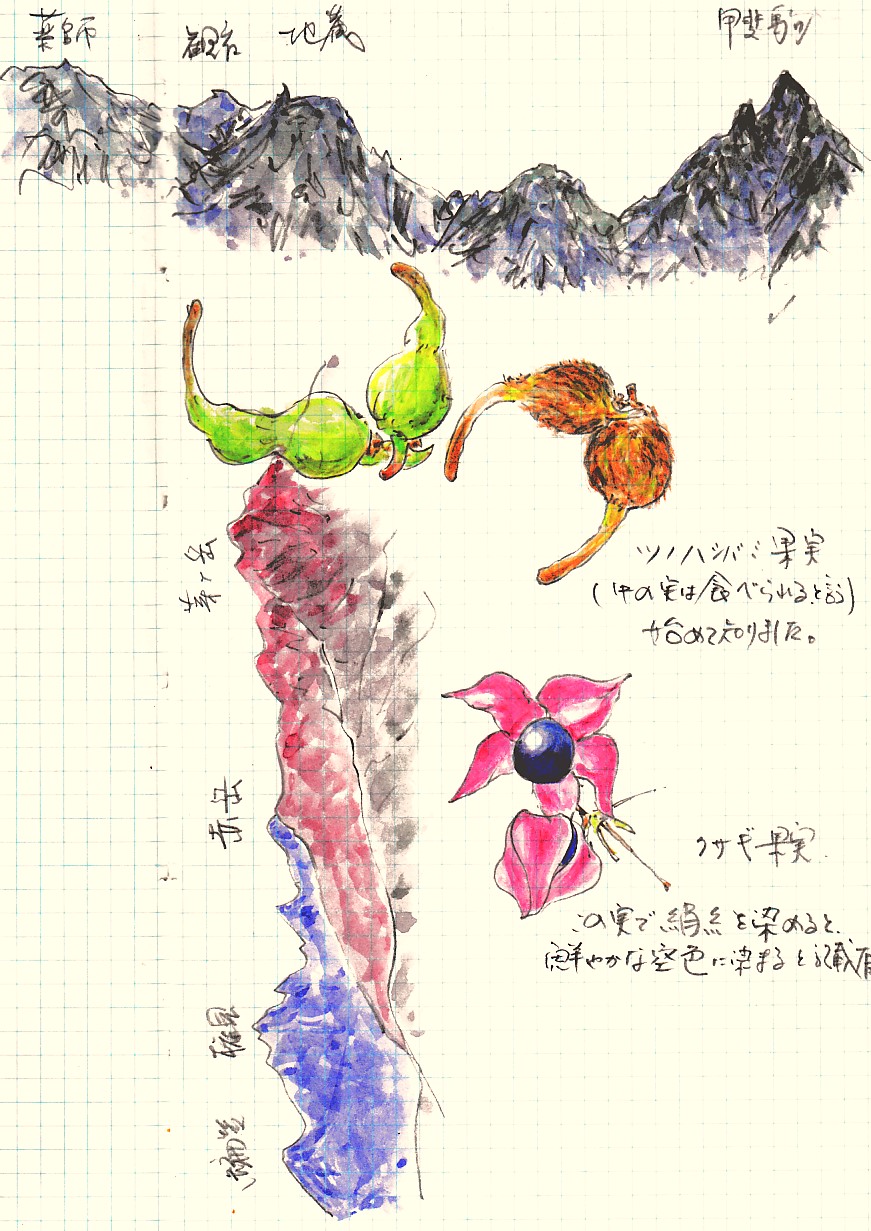 薬師
観音
地蔵
甲斐駒
ツノハシバミ果実
(中の実は食べられると記)
始めて知りました。
茅ヶ岳
赤岳
クサギ果実
この実で絹糸を染めると、
鮮やかな空色に染まると記載有
権現
編笠